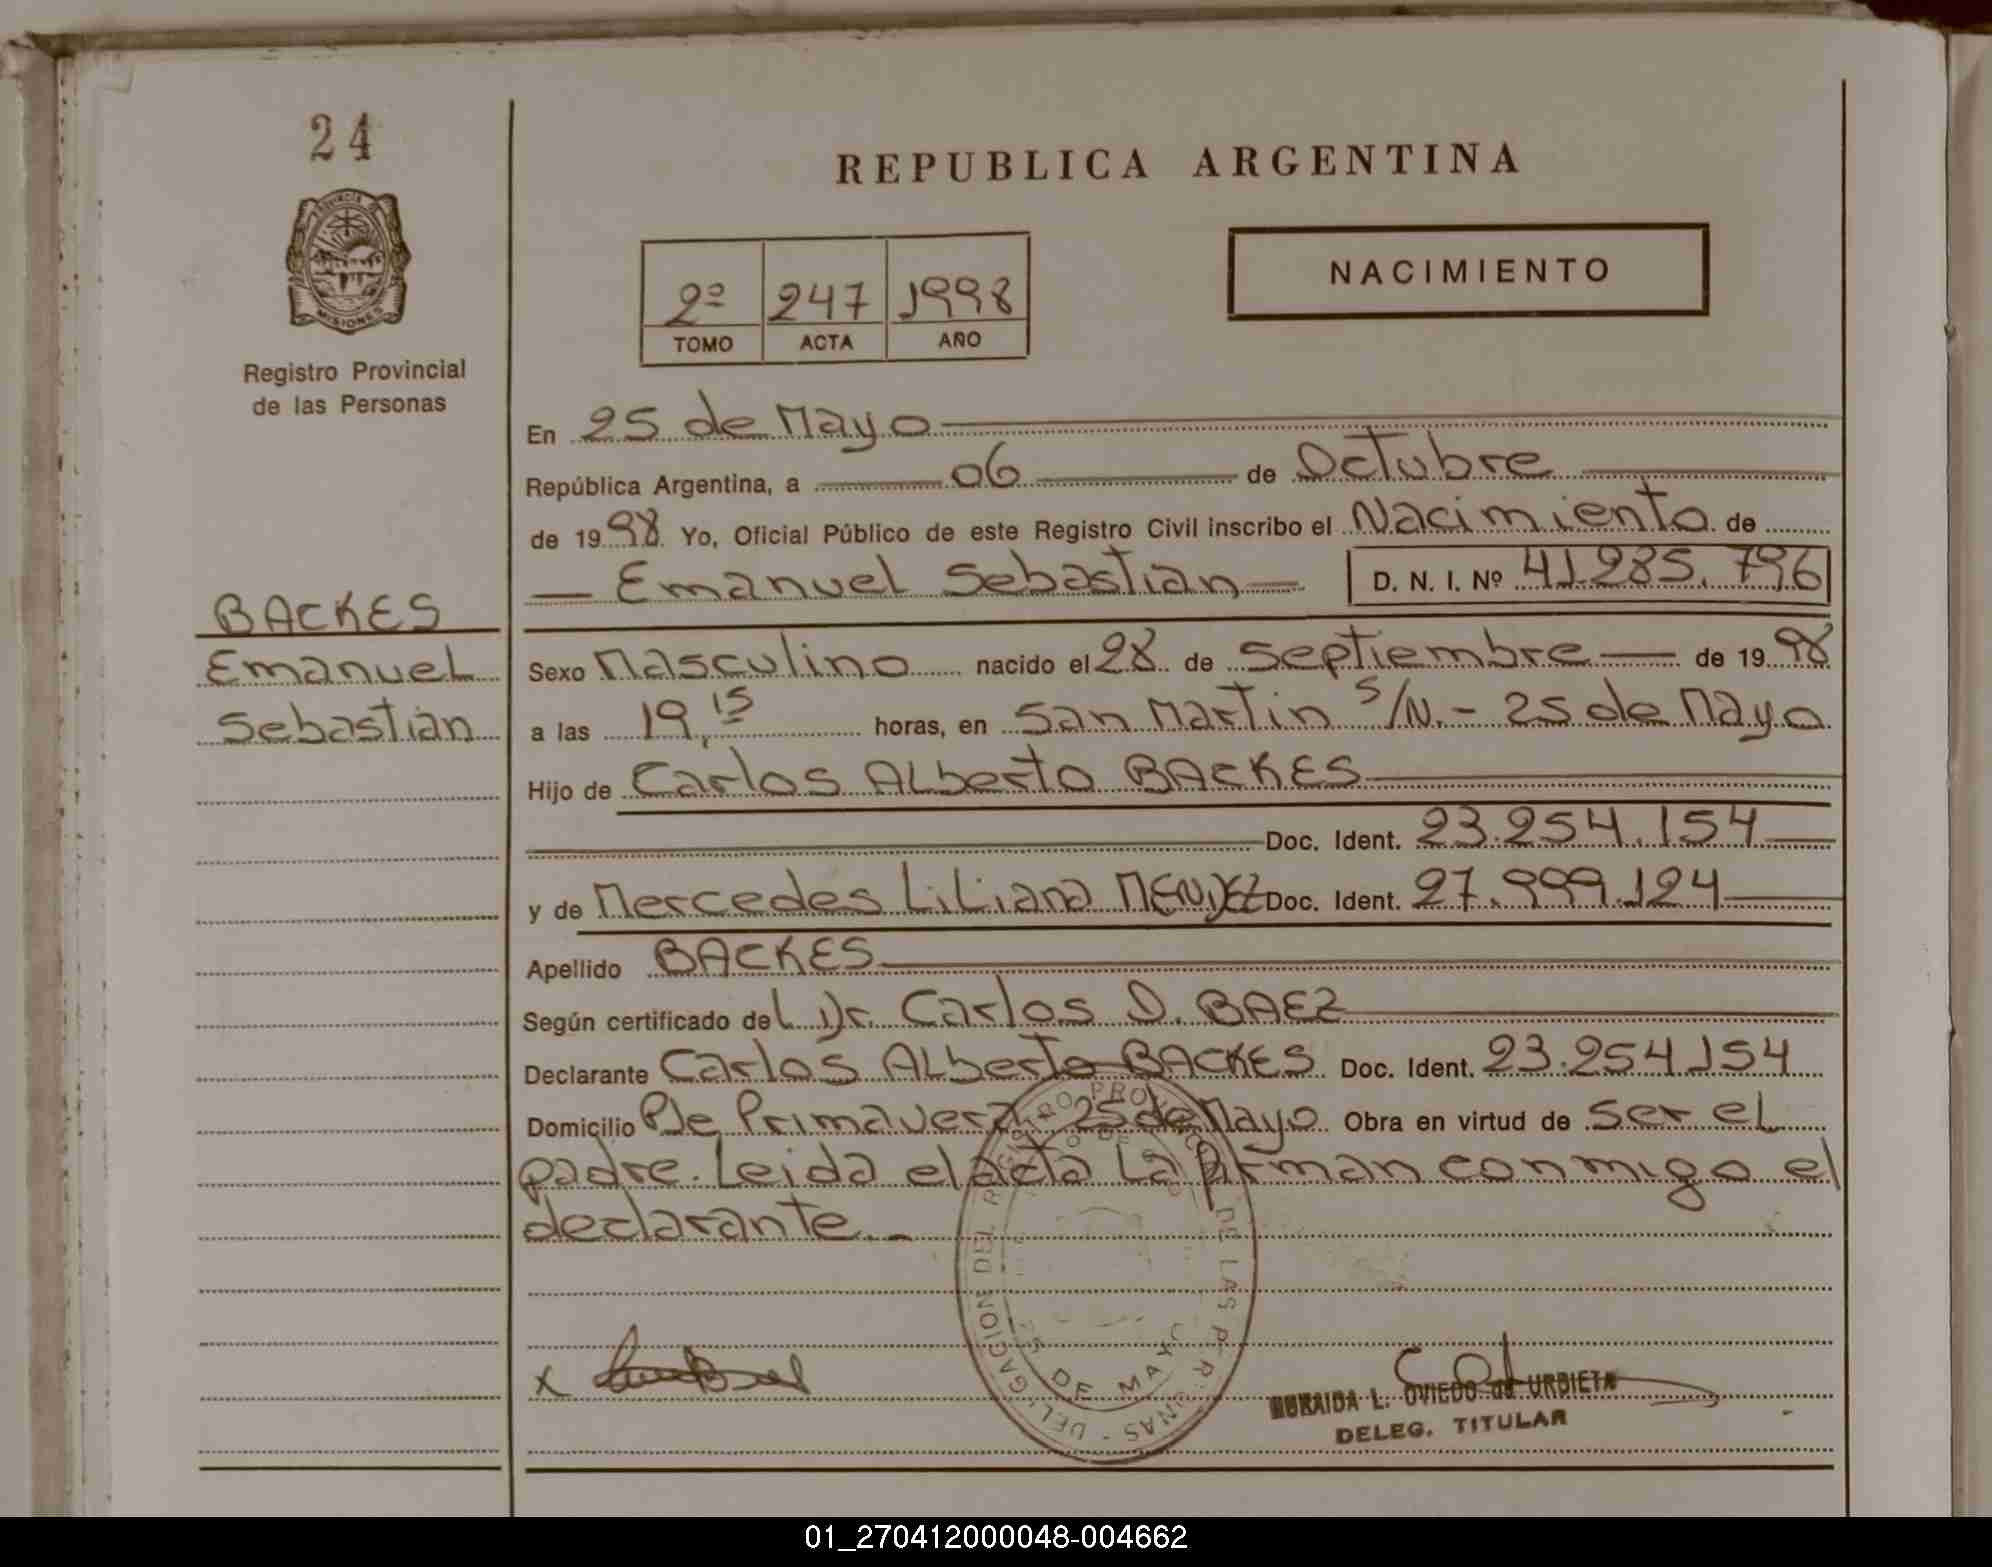 24
PROVINCIA DE
MISIONES
Registro Provincial
de las Personas
BACKES
Emanuel
Sebastián
REPUBLICA ARGENTINA
2º 247 1998
TOMO ACTA AÑO
NACIMIENTO
En 25 de Mayo
República Argentina, a 06 de Octubre
de 1998 Yo, Oficial Público de este Registro Civil inscribo el Nacimiento de
Emanuel Sebastián D. N. I. Nº 41.285.796
Sexo Masculino nacido el 28 de Septiembre de 1998
a las 19,15 horas, en San Martin S/N.- 25 de Mayo
Hijo de Carlos Alberto BACKES
Doc. Ident. 23.254.154
y de Mercedes Liliana Doc. Ident. 27.999.124
Apellido BACKES
Según certificado del Dr. Carlos D. BAEZ
Declarante Carlos Alberto BACKES Doc. Ident. 23.254.154
Domicilio Pje Primavera 25 de Mayo Obra en virtud de ser el
padre. Leida el acta La firman conmigo el
declarante.-
DELEGACION DEL REGISTRO PROVINCIAL DE LAS PERSONAS
25 DE MAYO
x
L. OVIEDO de URBIETA
DELEG. TITULAR
01_270412000048-004662